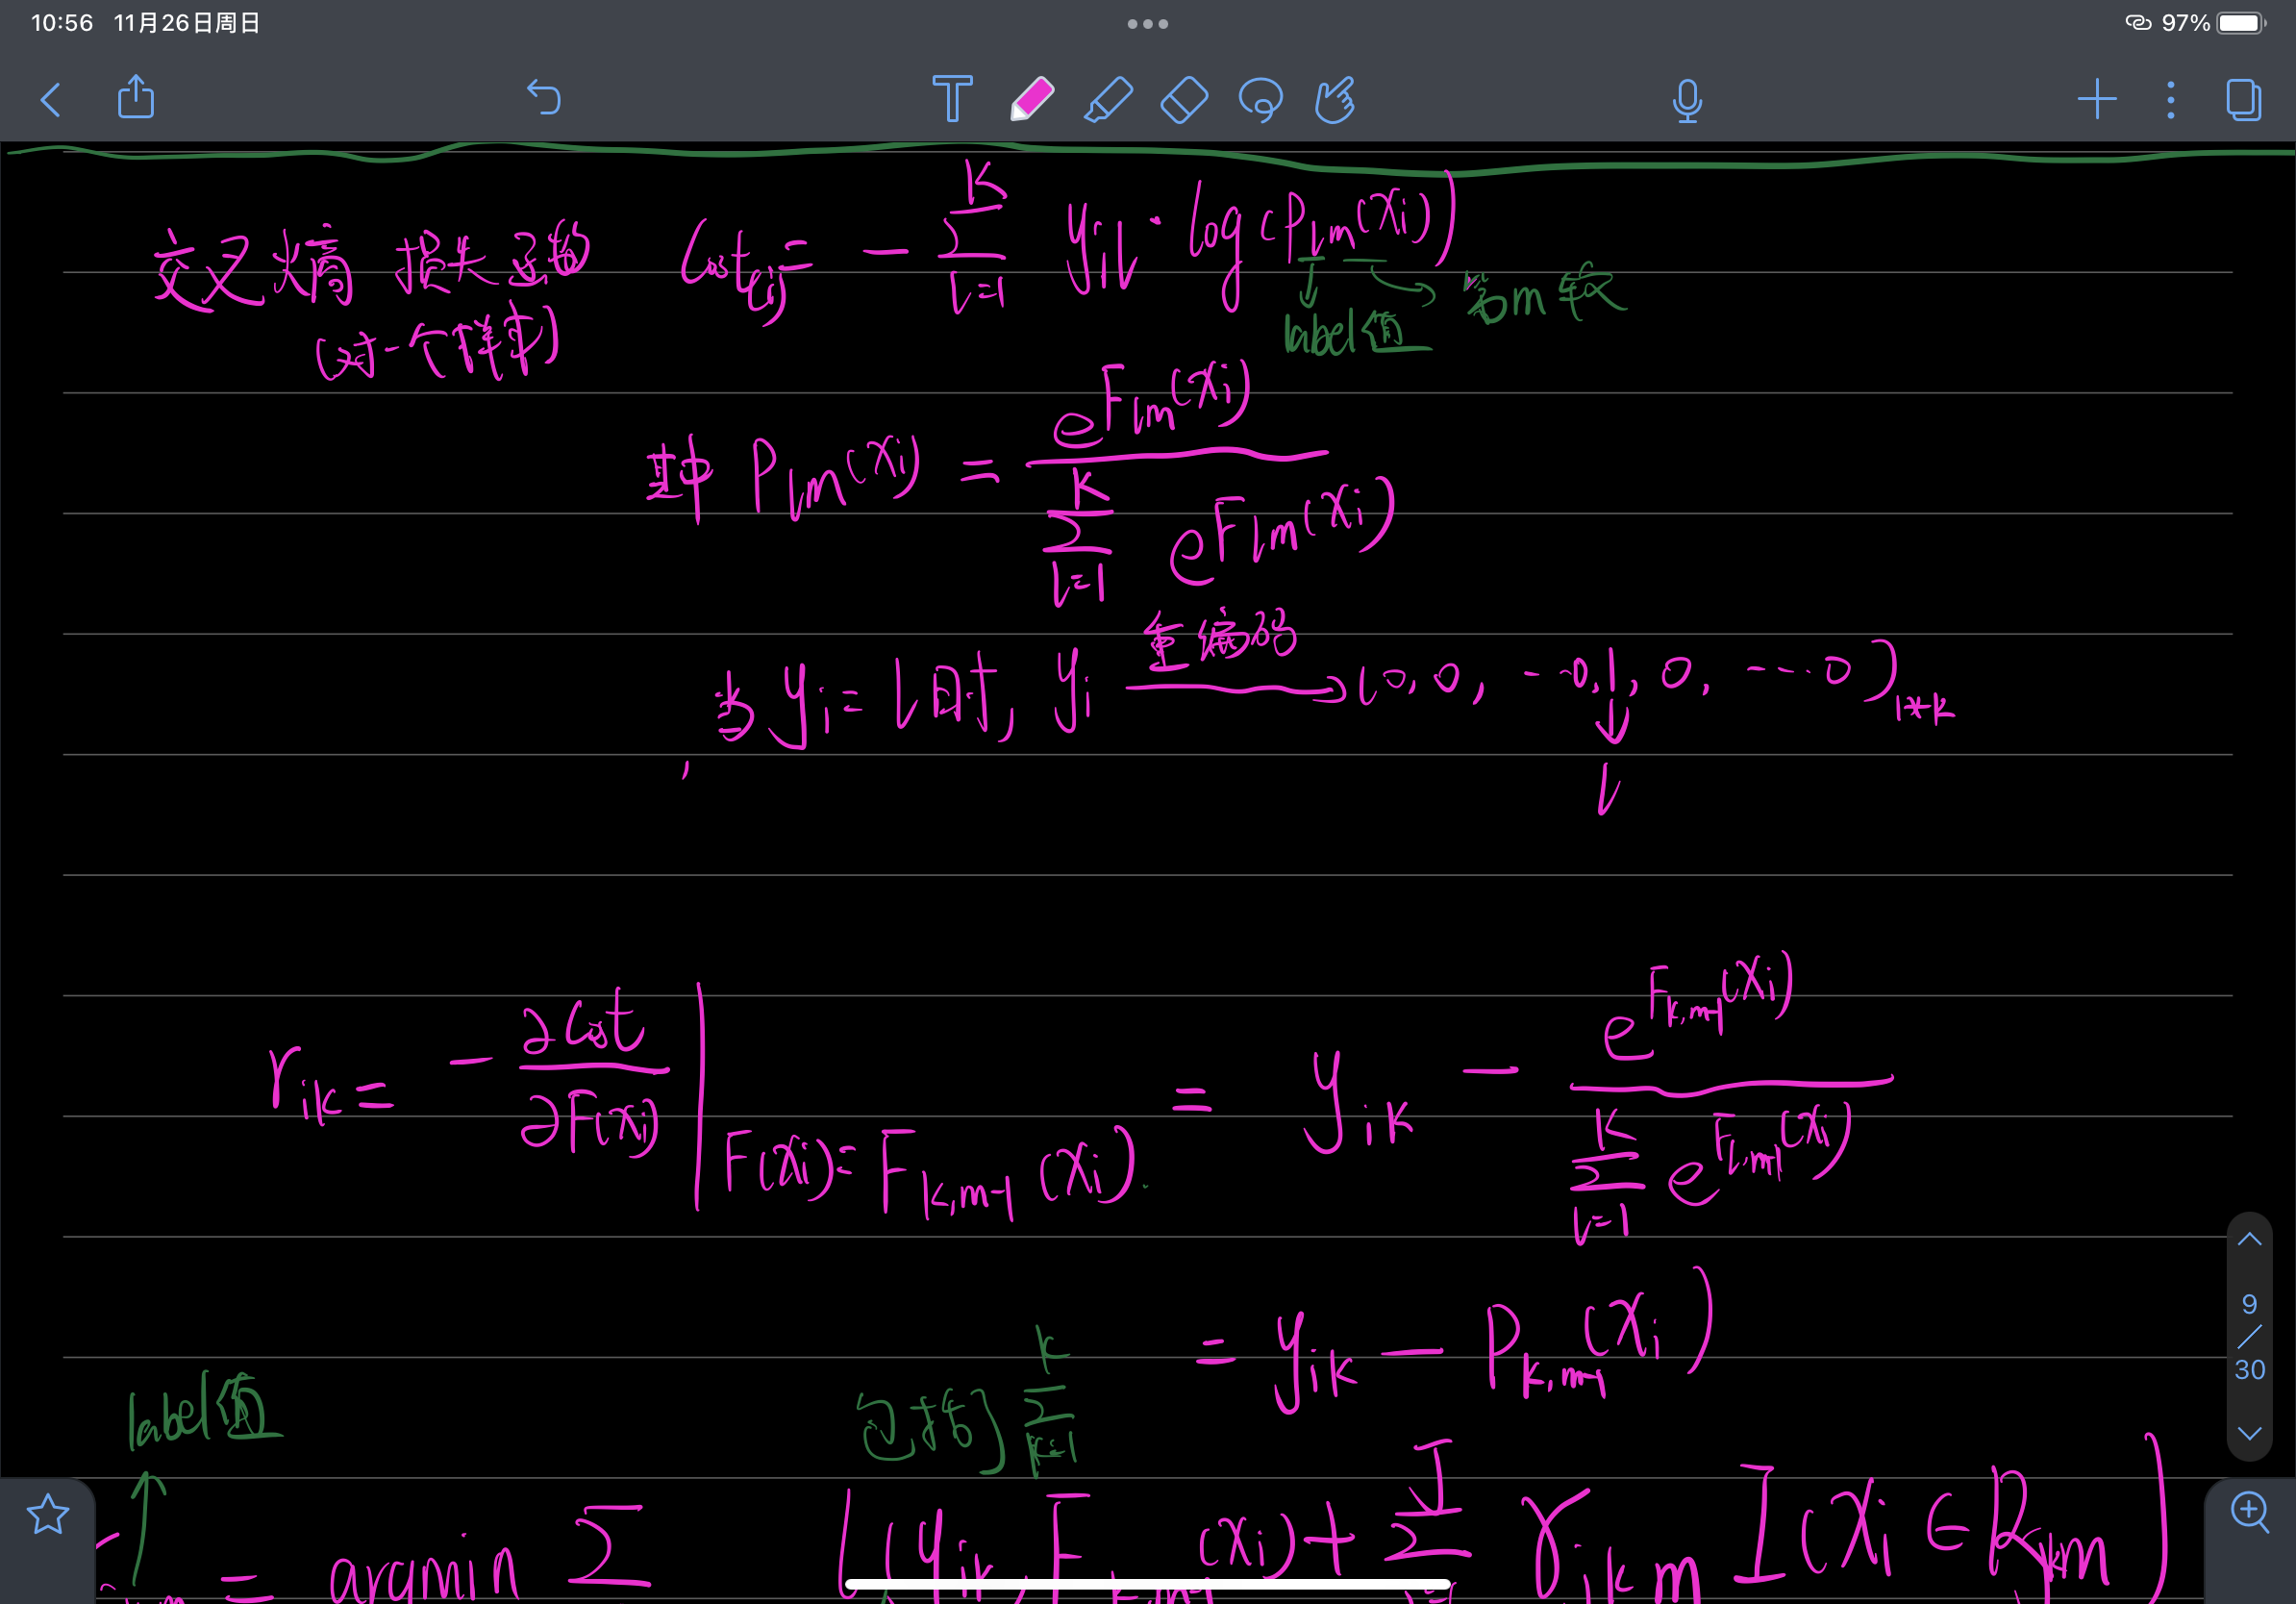 10:56 11月26日周日
97%
交叉熵 损失函数 Cost(i) = - ∑_{l=1}^{K} y_{il} · log(P_{lm}(x_i))
(对一个样本)
label值 第m轮
其中 P_{lm}(x_i) = e^{F_{lm}(x_i)} / ∑_{l=1}^{K} e^{F_{lm}(x_i)}
当 y_i = l 时, y_i 重编码 → (0, 0, ...0, 1, 0, ....0)_{1*k}
↓
l
r_{ik} = - ∂Cost / ∂F(x_i) | F(x_i) = F_{k,m-1}(x_i) = y_{ik} - e^{F_{k,m-1}(x_i)} / ∑_{l=1}^{K} e^{F_{l,m-1}(x_i)}
= y_{ik} - P_{k,m-1}(x_i)
label值 包括 ∑_{k=1}^{k}
= argmin ∑ L(y_{ik}, F (x_i) + ∑^{J} γ_{jkm} I(x_i ∈ R
9
/
30